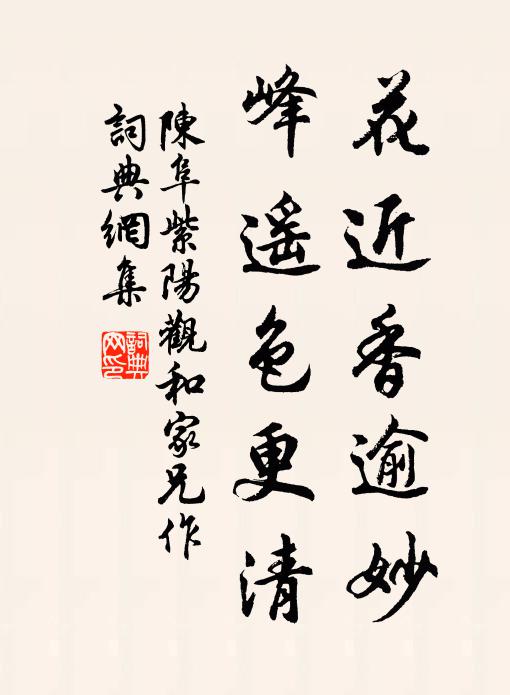 花近香逾妙
峰遥色更清
陳阜紫陽觀和家兄作
詞典網集
詞典網印